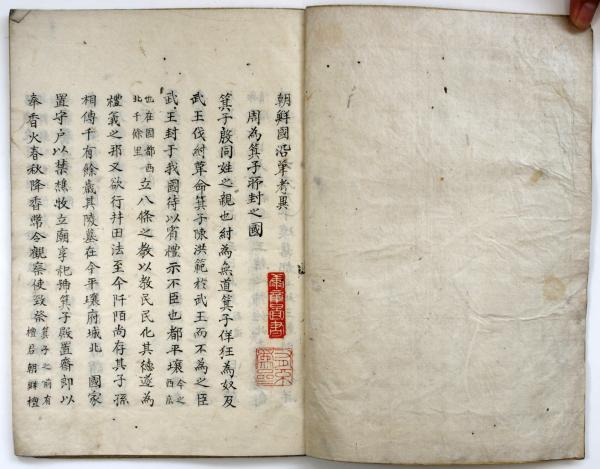 朝鮮國沿革考異
周為箕子所封之國
箕子殷同姓之親也紂為無道箕子佯狂為奴及
武王伐紂革命箕子陳洪範於武王而不為之臣
武王封于我國待以賓禮示不臣也都平壤今之西京
也在國都西北千餘里立八條之教以教民民化其德遂為
禮義之邦又欲行井田法至今阡陌尚存其子孫
相傳千有餘歲其陵墓在今平壤府城北 國家
置守户以禁樵牧立廟享祀號箕子殿置齋郎以
奉香火春秋降香幣令觀察使致祭箕子之前有檀君朝鮮檀